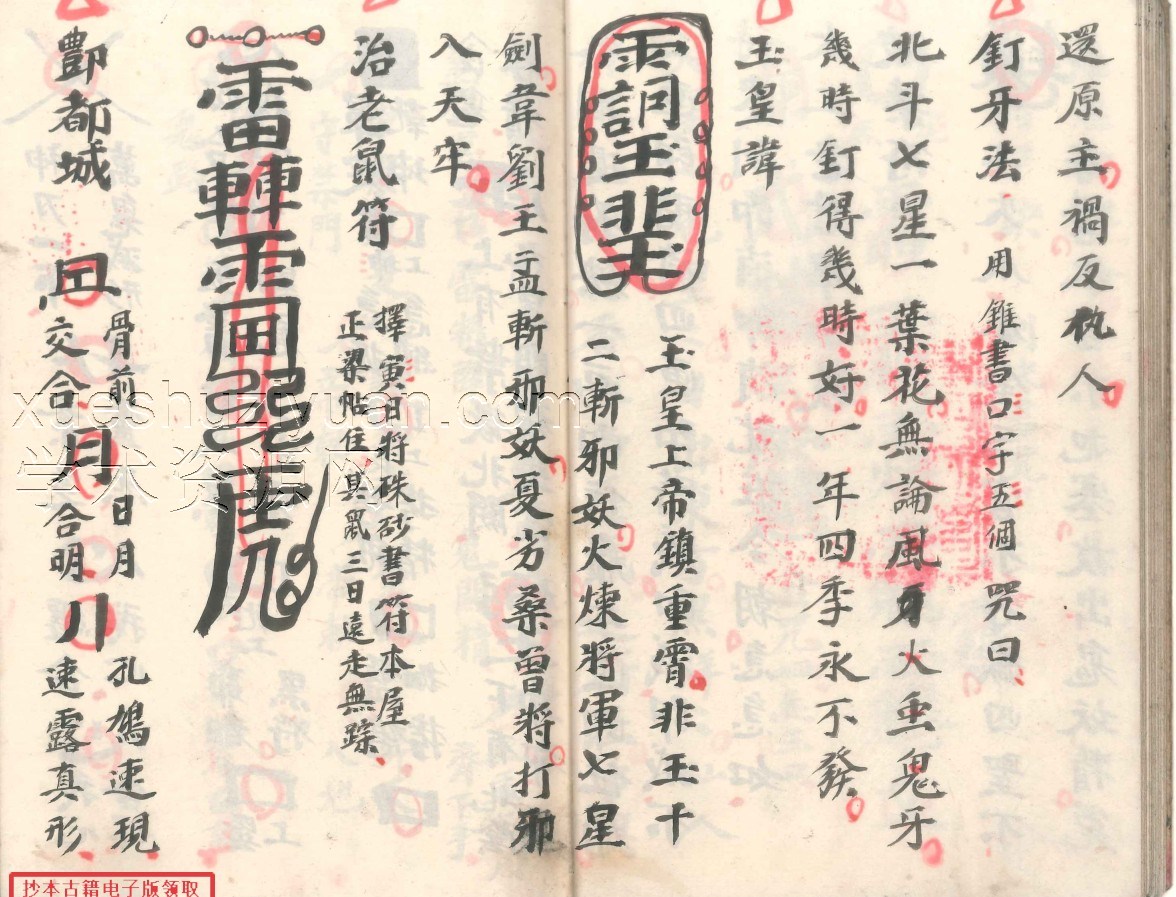 還原主禍反執人
釘牙法 用錐書口字五個 咒曰
北斗七星一葉花無論風牙火虫鬼牙
幾時釘得幾時好一年四季永不發
玉皇諱
玉皇上帝鎮重霄非玉十
二斬邪妖火煉將軍七星
劍韋劉王孟斬邪妖夏劣桑曾將打邪
入天牢
治老鼠符
擇寅日將硃砂書符本屋
正梁帖住其鼠三日遠走無踪
酆都城
骨前
交合
月
日月
合明
孔鳩速現
速露真形
xueshuziyuan.com
学术资源网
抄本古籍电子版领取